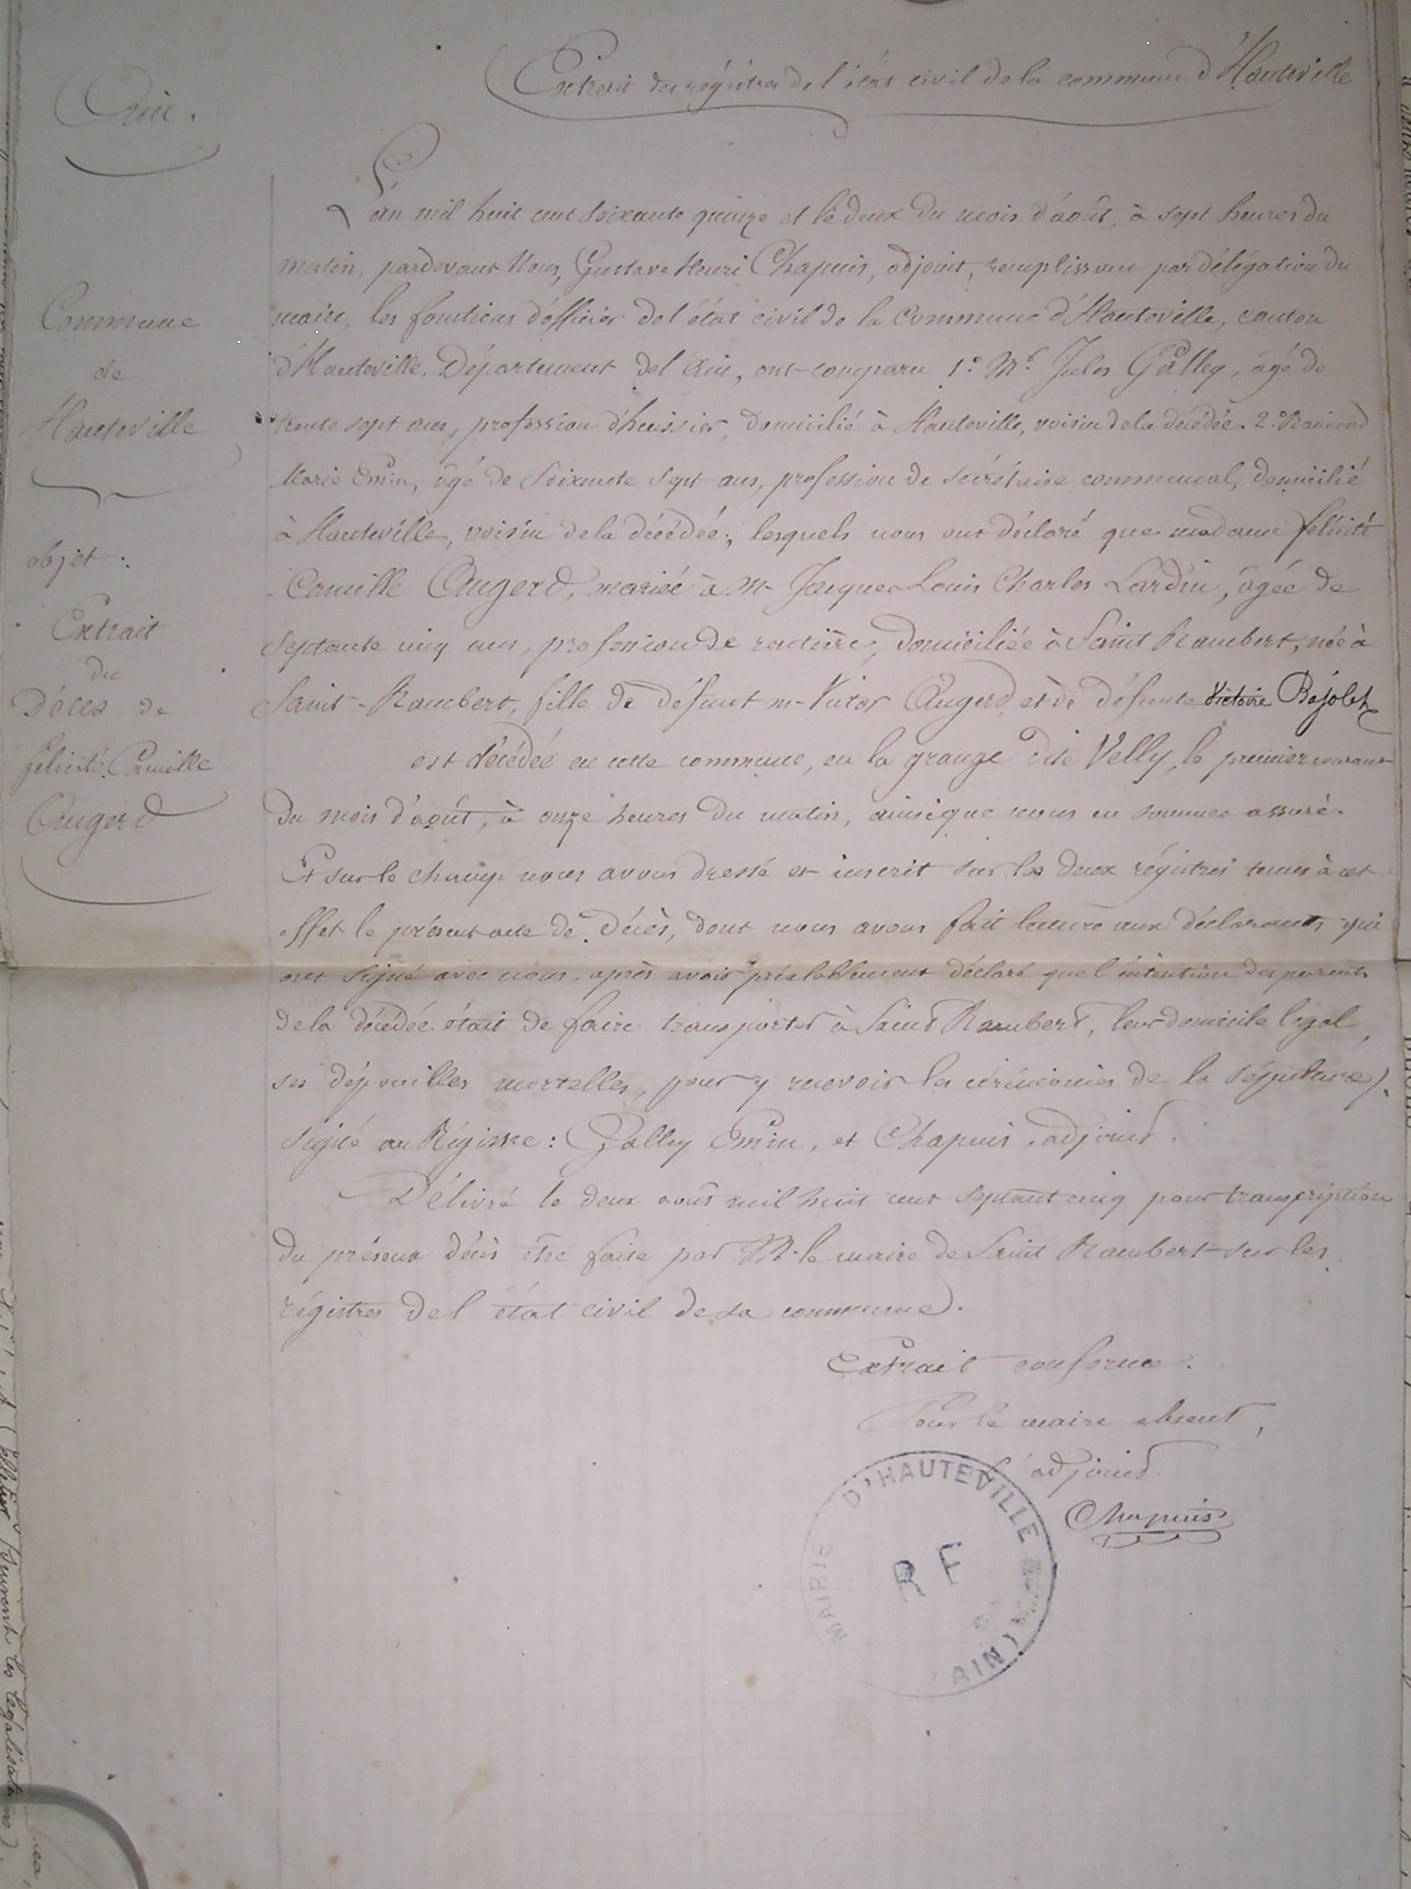 Extrait des régistres de l'état civil de la commune d'Hauteville
Ain.
L'an mil huit cent soixante quinze et le deux du mois d'août, à sept heures du
matin, pardevant Nous, Gustave Henri Chapuis, adjoint, remplissant par délégation du
maire, les fonctions d'officier de l'état civil de la Commune d'Hauteville, canton
d'Hauteville, Département de l'Ain, ont comparu 1° Mr Jules Galley, âgé de
trente sept ans, profession d'huissier, domicilié à Hauteville, voisin de la décédée. 2°
Marie Emin, âgé de soixante sept ans, profession de secrétaire communal, domicilié
à Hauteville, voisin de la décédée; lesquels nous ont déclaré que madame félicité
Camille Augerd, mariée à Mr Jacques Louis Charles Lardin, âgée de
septante cinq ans, profession de rentière, domiciliée à Saint Rambert, née à
Saint-Rambert, fille de défunt mr Victor Augerd et de défunte Victoire Bajolet
est décédée en cette commune, en la grange dite Velly, le premier courant
du mois d'août, à onze heures du matin, ainsi que nous en sommes assuré.
Et sur le champ nous avons dressé et inscrit sur les deux régistres tenus à cet
effet le présent acte de Décès, dont nous avons fait lecture aux déclarants qui
ont signé avec nous, après avoir préalablement déclaré que l'intention des parents
de la décédée était de faire transporter à Saint Rambert, leur domicile légal,
ses dépouilles mortelles, pour y recevoir les cérémonies de la sépulture).
Signé au Régistre: Galley Emin, et Chapuis, adjoint.
Délivré le deux août mil huit cent septant cinq pour transcription
du présent décès être faite par Mr le maire de Saint Rambert sur les
régistres de l'état civil de sa commune.
Extrait conforme.
Pour le maire absent,
L'adjoint.
Chapuis
Commune
de
Hauteville
objet:
Extrait
du
Décès de
félicité Camille
Augerd
MAIRIE D'HAUTEVILLE
RF
(AIN)